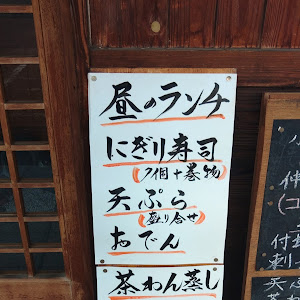 昼のランチ
にぎり寿司
(7個十巻物)
天ぷら
(盛り合せ)
おでん
茶わん蒸し